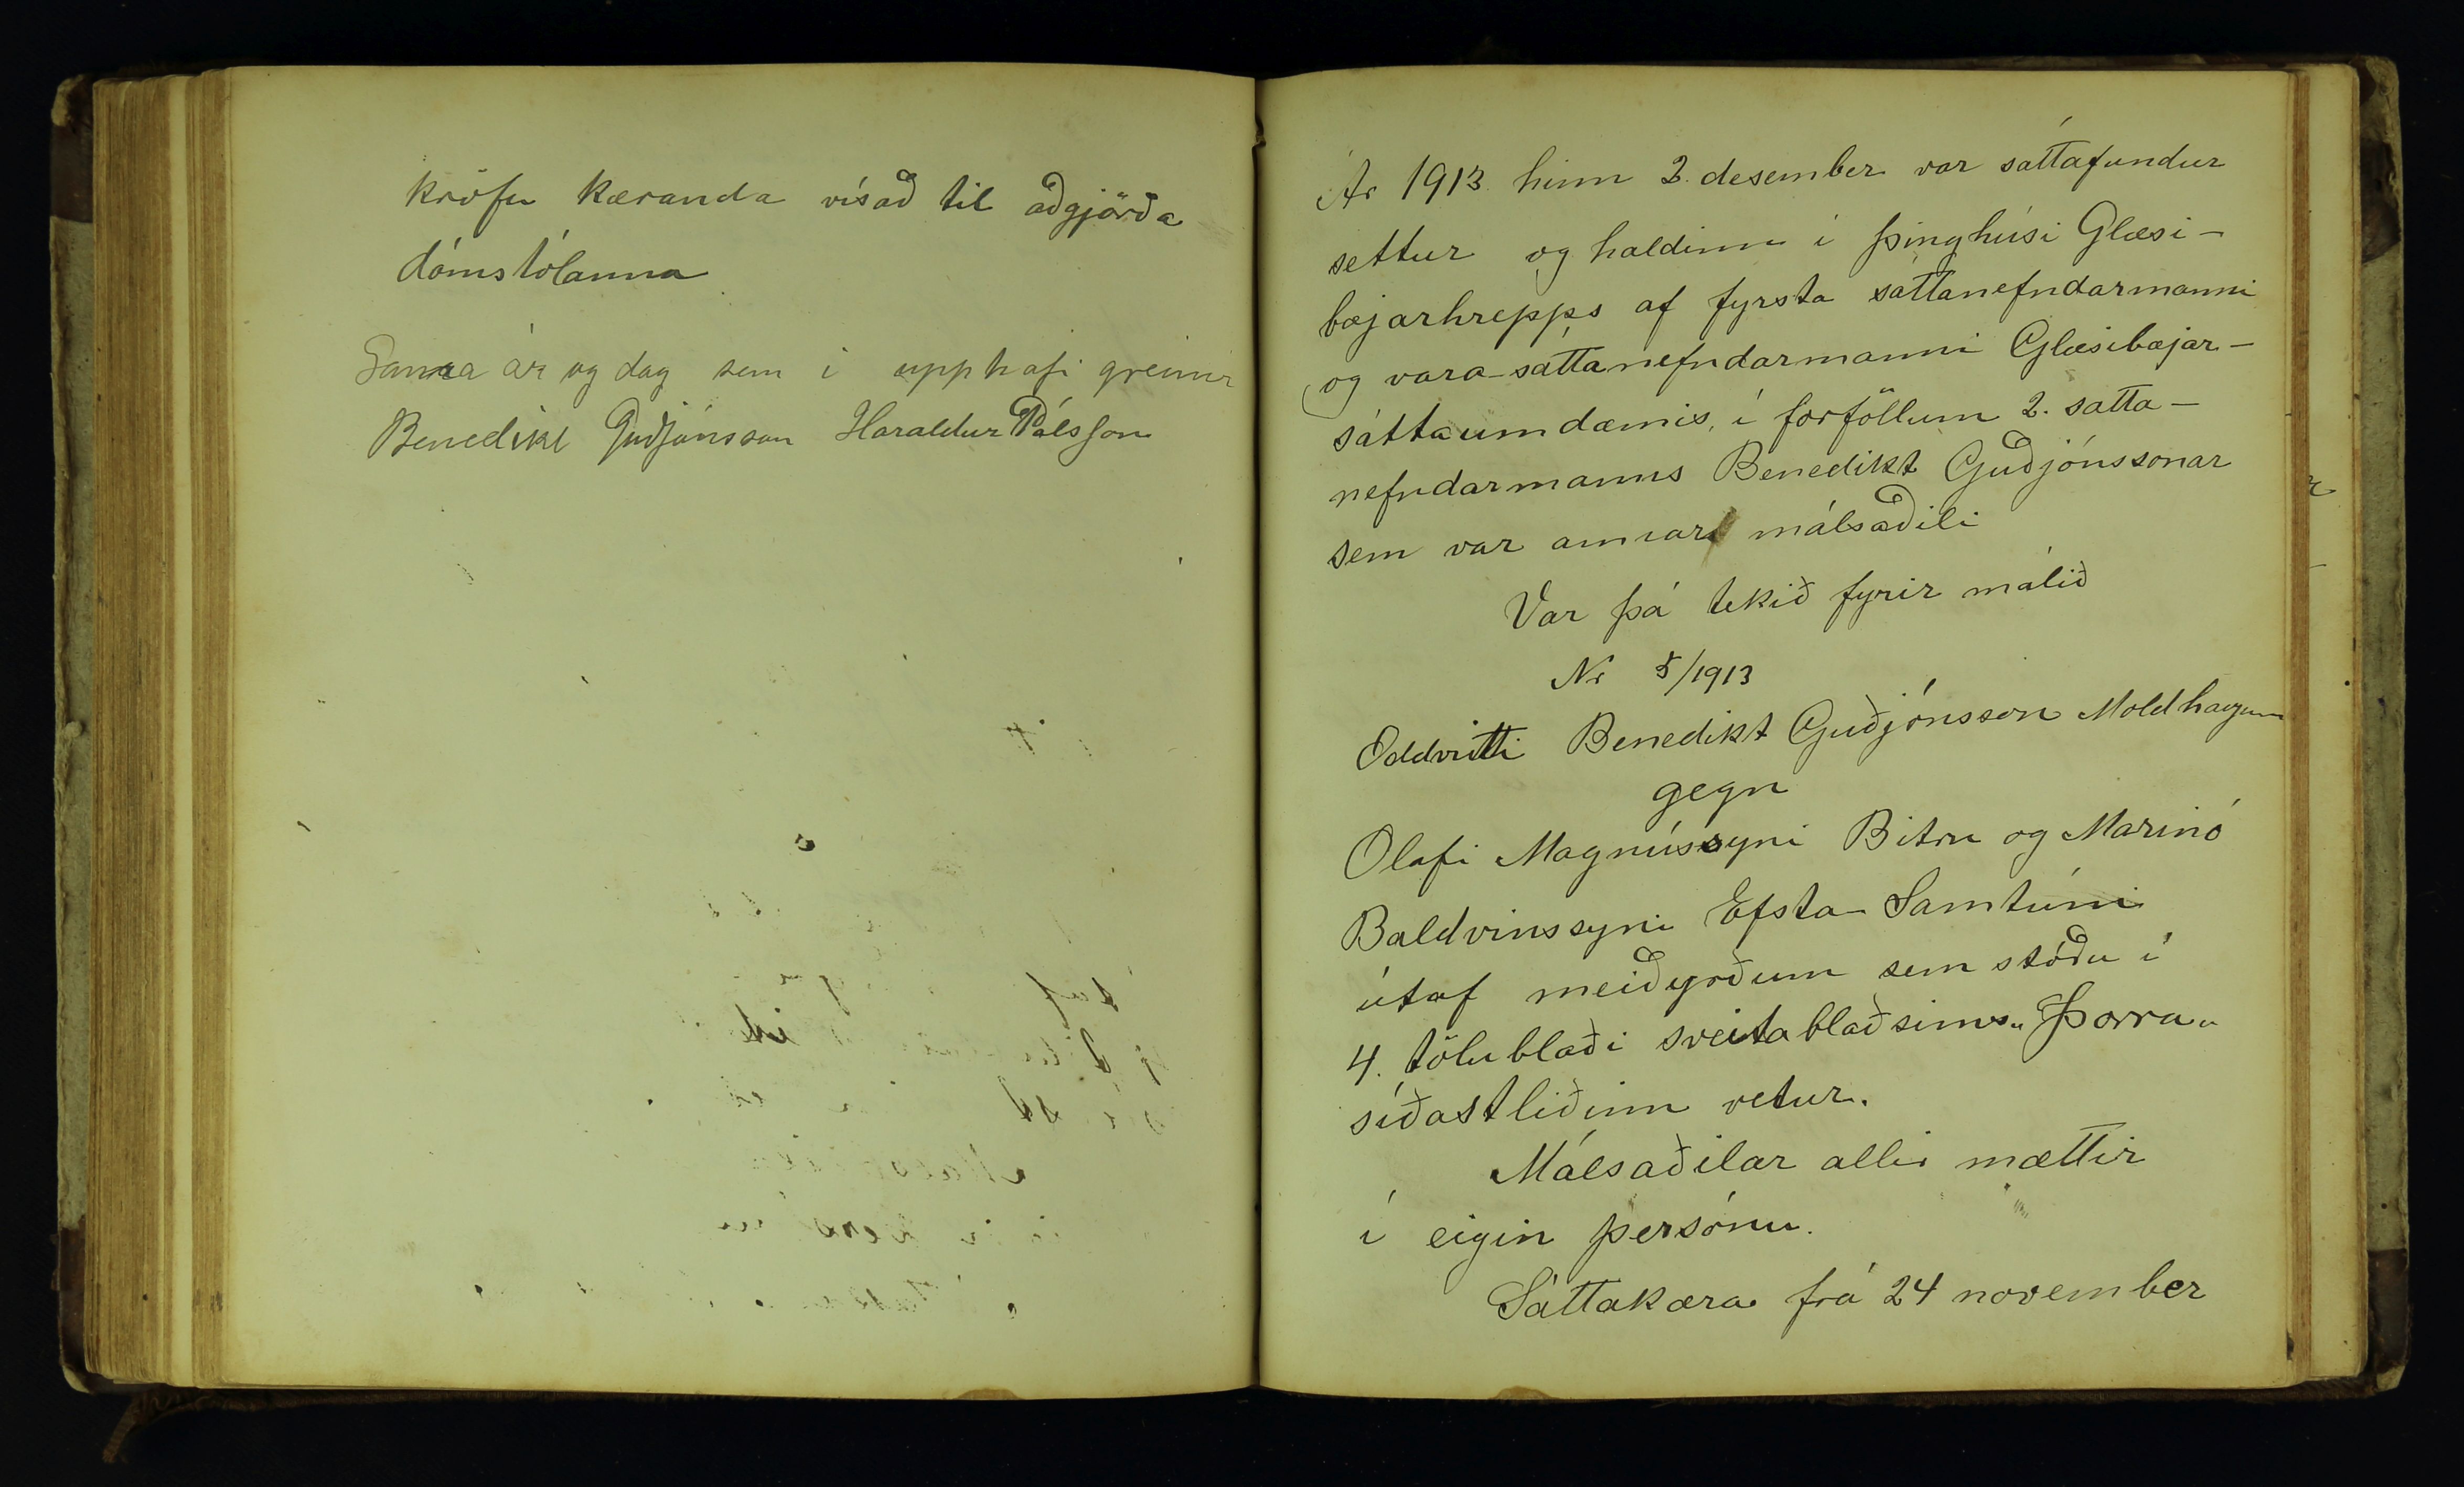 kröfu kæranda vísað til aðgjörða
dómstólanna
Sama ár og dag sem í upphafi greinir
Benedikt Guðjónsson Haraldur Pálsson
Ár 1913 hinn 2. desember var sáttafundur
settur og haldinn í þinghúsi Glæsi-
bæjarhrepps af fyrsta sáttanefndarmanni
og vara-sáttanefndarmanni Glæsibæjar-
sáttaumdæmis, í forföllum 2. sátta-
nefndarmanns Benedikt Guðjónssonar
sem var annar málsaðili
Var þá tekið fyrir málið
Nr 5/1913
Oddviti Benedikt Guðjónsson Moldhaugum
gegn
Olafi Magnússyni Bitru og Marinó
Baldvinssyni Efsta-Samtúni
útaf meiðyrðum sem stóðu í
4. tölublaði sveitablaðsins „Þorra"
síðastliðinn vetur.
Málsaðilar allir mættir
í eigin persónu.
Sáttakæra frá 24 november